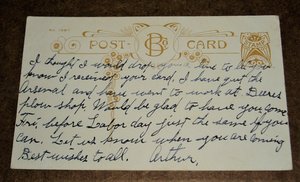 POST CARD
I thought I would drop you a line to let you
know I received your card. I have quit the
Arsenal and have went to work at Deere
plow shop. Would be glad to have you come
Fri, before Labor day just the same if you
can. Let us know when you are coming
Best wishes to all. Arthur.